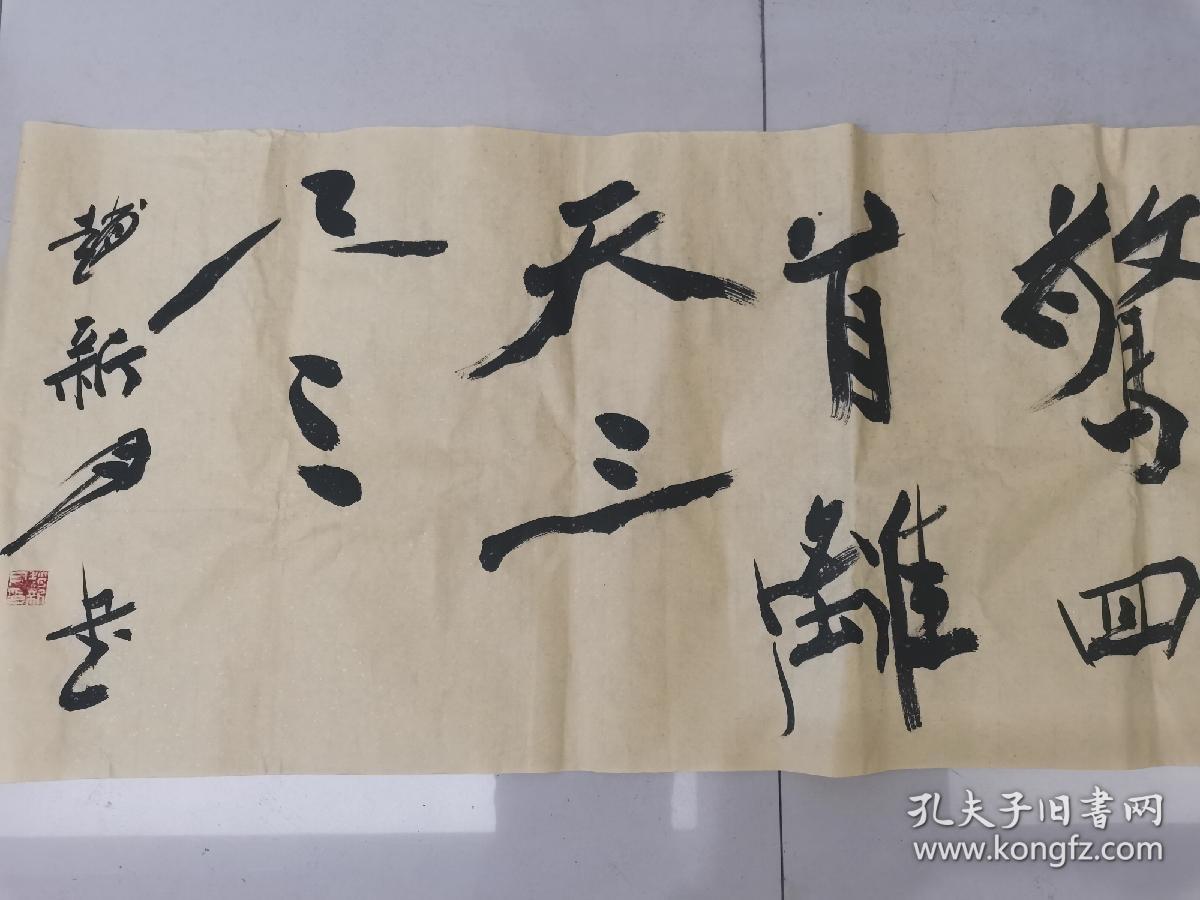 驚回
首離
天三
尺三
趙新月書
孔夫子旧书网
www.kongfz.com